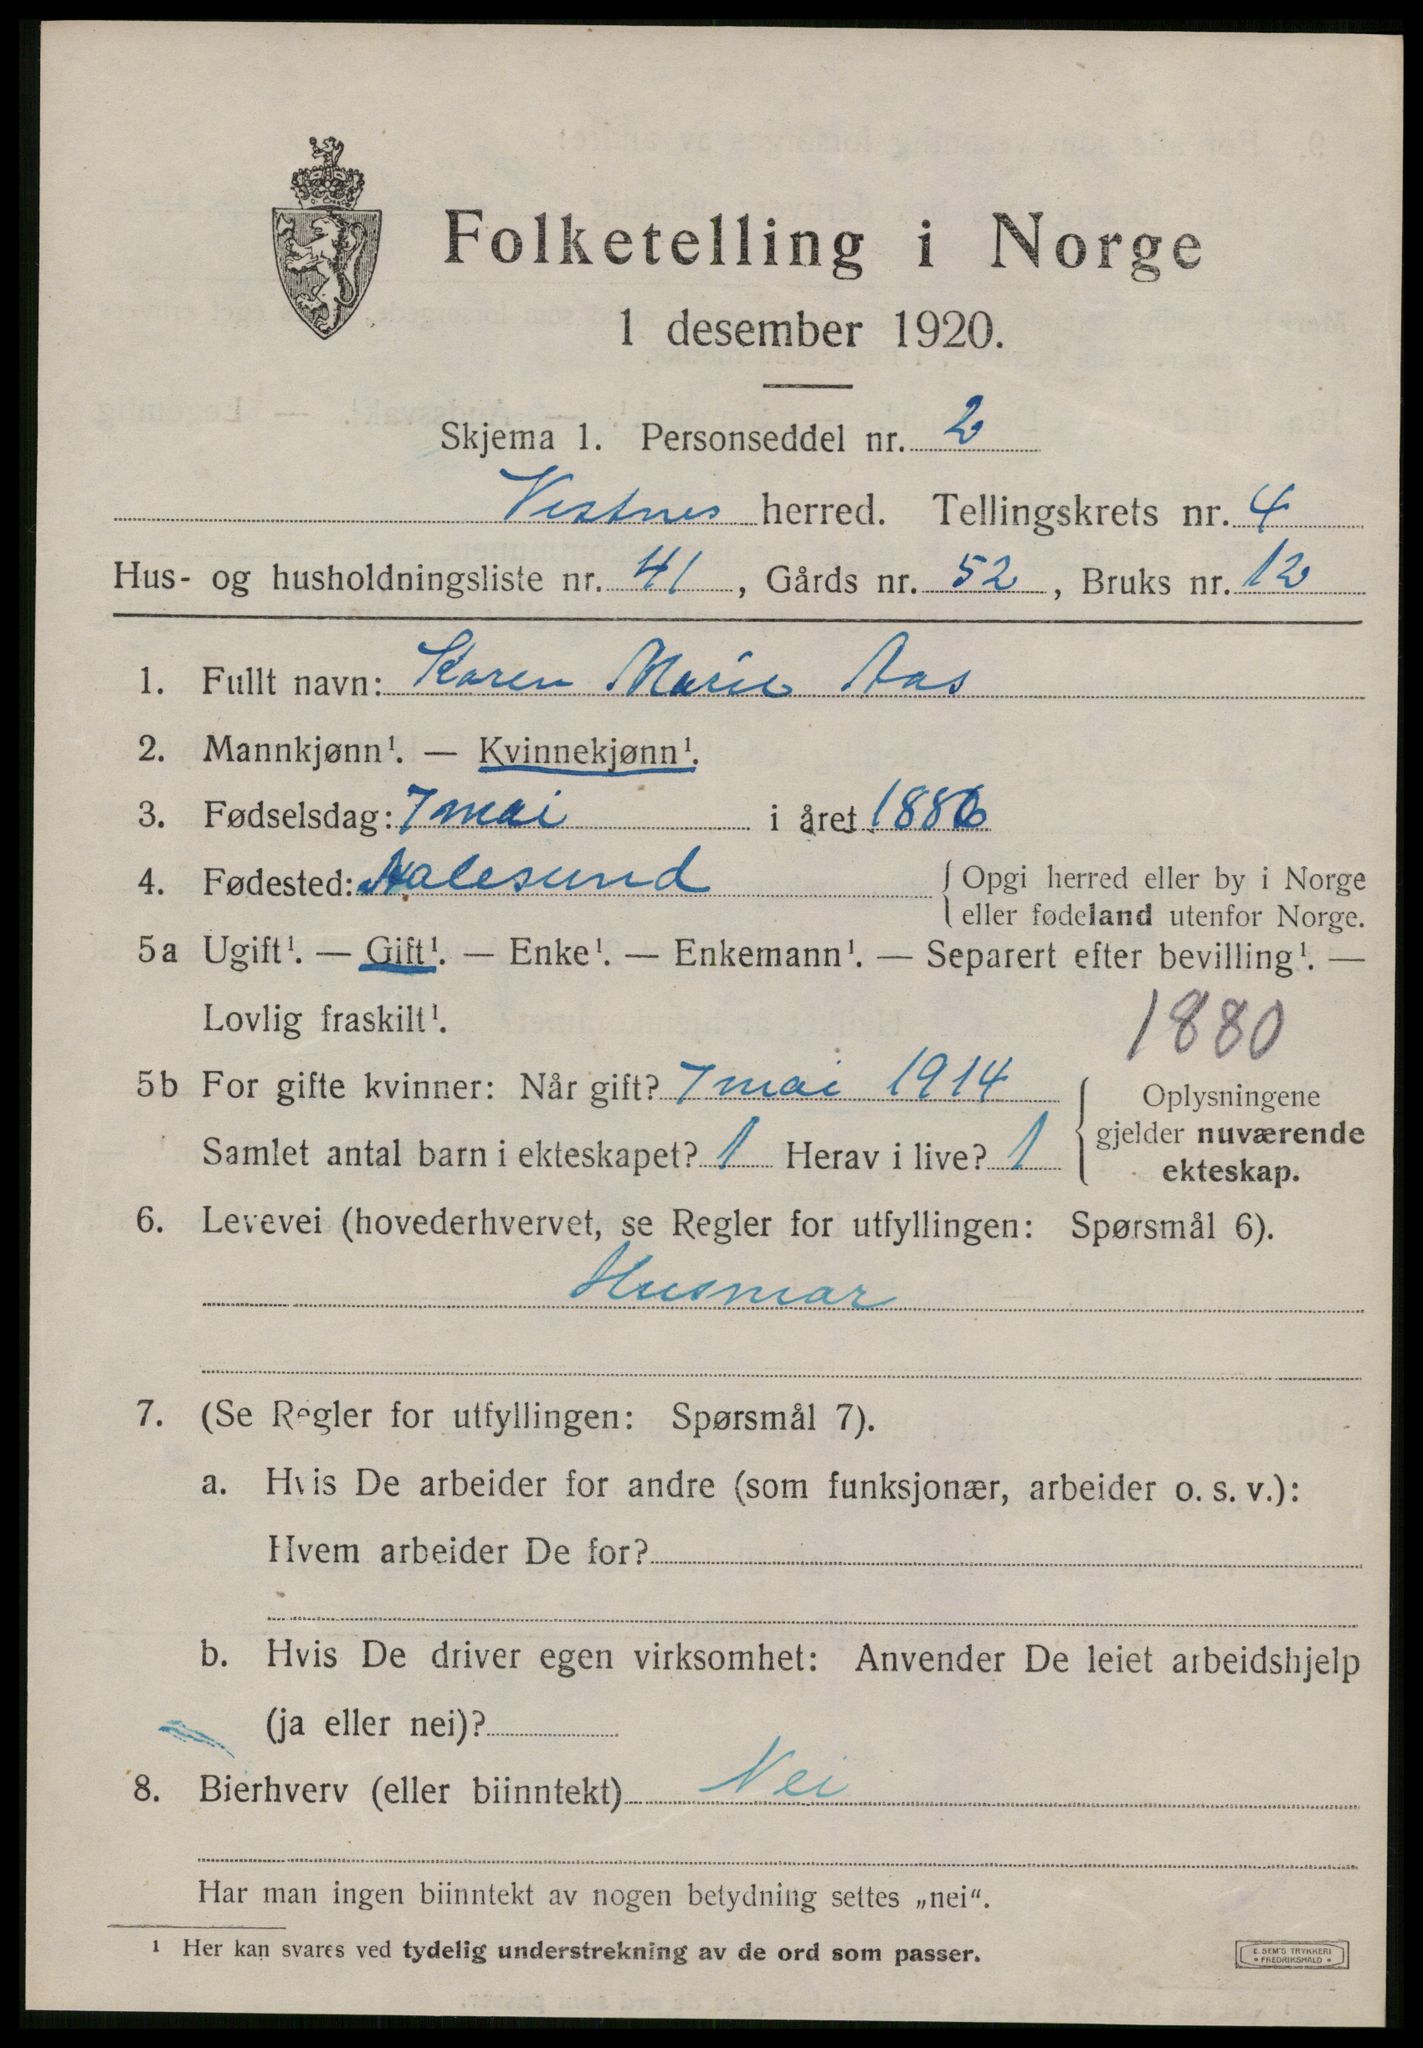 Folketelling i Norge
1 desember 1920.
Skjema 1. Personseddel nr. 2
Vestnes herred. Tellingskrets nr. 4
Hus- og husholdningsliste nr. 41, Gårds nr. 52, Bruks nr. 12
1. Fullt navn: Karen Marie Aas
2. Mannkjønn¹. — Kvinnekjønn¹.
3. Fødselsdag: 7 mai i året
4. Fødested: Aalesund { Opgi herred eller by i Norge
eller fødeland utenfor Norge.
5a Ugift¹. — Gift¹. — Enke¹. — Enkemann¹. — Separert efter bevilling¹. —
Lovlig fraskilt¹.
1880
5b For gifte kvinner: Når gift? 7 mai 1914 { Oplysningene
gjelder nuværende
ekteskap.
Samlet antal barn i ekteskapet? 1 Herav i live? 1
6. Levevei (hovederhvervet, se Regler for utfyllingen: Spørsmål 6).
Husmor
7. (Se Regler for utfyllingen: Spørsmål 7).
a. Hvis De arbeider for andre (som funksjonær, arbeider o. s. v.):
Hvem arbeider De for?
b. Hvis De driver egen virksomhet: Anvender De leiet arbeidshjelp
(ja eller nei)?
8. Bierhverv (eller biinntekt) Nei
Har man ingen biinntekt av nogen betydning settes „nei“.
¹ Her kan svares ved tydelig understrekning av de ord som passer.
E. SEM'S TRYKKERI
• FREDRIKSHALD •